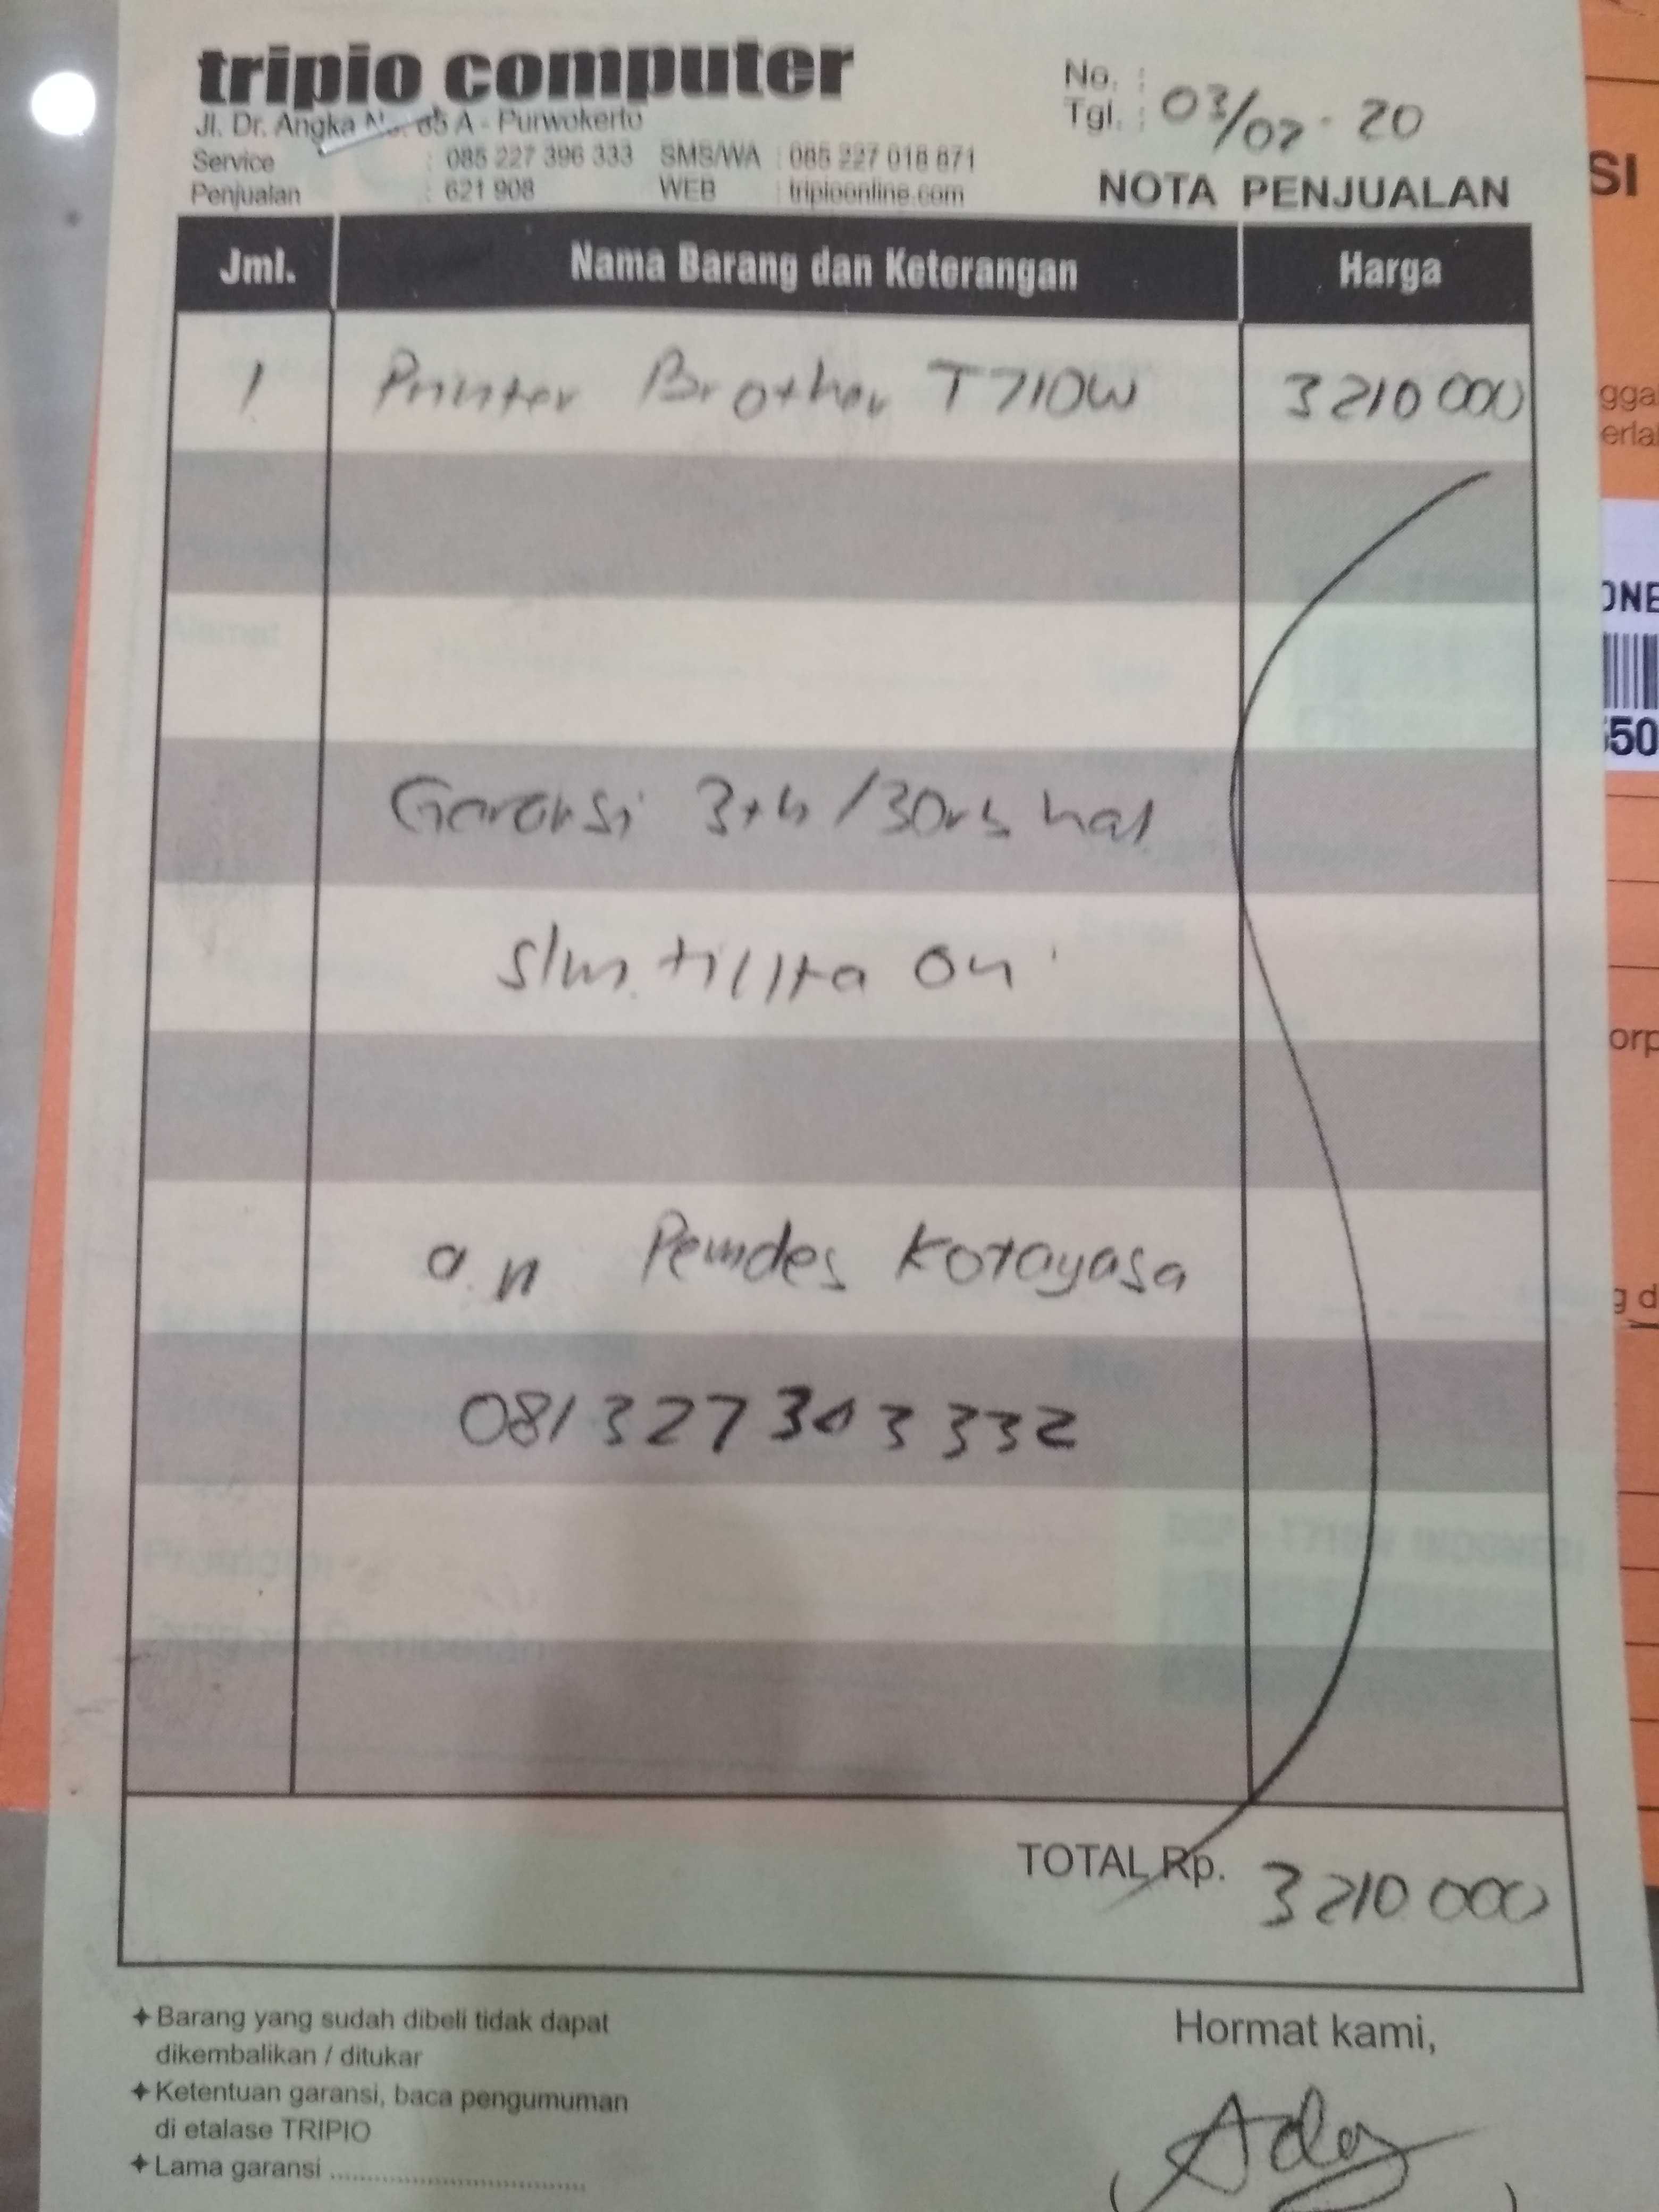 tripio computer
Jl. Dr. Angka No. 65 A - Purwokerto
Service : 085 227 396 333 SMS/WA : 085 227 018 871
Penjualan : 621 908 WEB : tripioonline.com
No. :
Tgl. : 03/02 - 20
NOTA PENJUALAN
Jml. Nama Barang dan Keterangan Harga
1 Printer Brother T710W 3210 000
Garansi 3th /30rb hal
tinta ori
a.n Pemdes Kotayasa
081327303332
TOTAL Rp. 3210 000
Barang yang sudah dibeli tidak dapat
dikembalikan / ditukar
Ketentuan garansi, baca pengumuman
di etalase TRIPIO
Lama garansi ..............................
Hormat kami,
SI
ONE
550